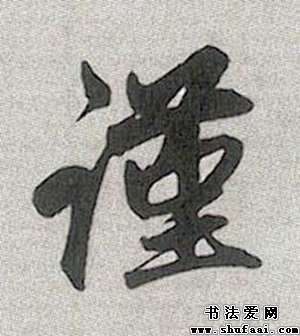 谨
书法爱网
www.shufaai.com